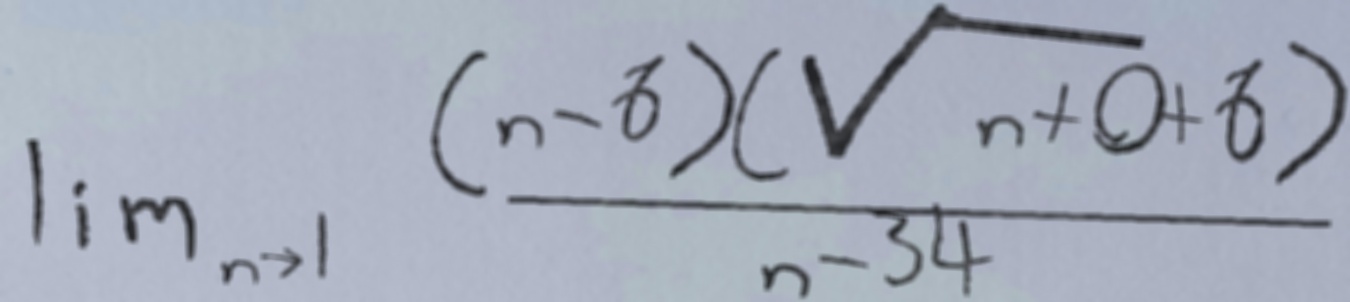 lim_{n→1} \frac{(n-8)(\sqrt{n+0}+8)}{n-34}